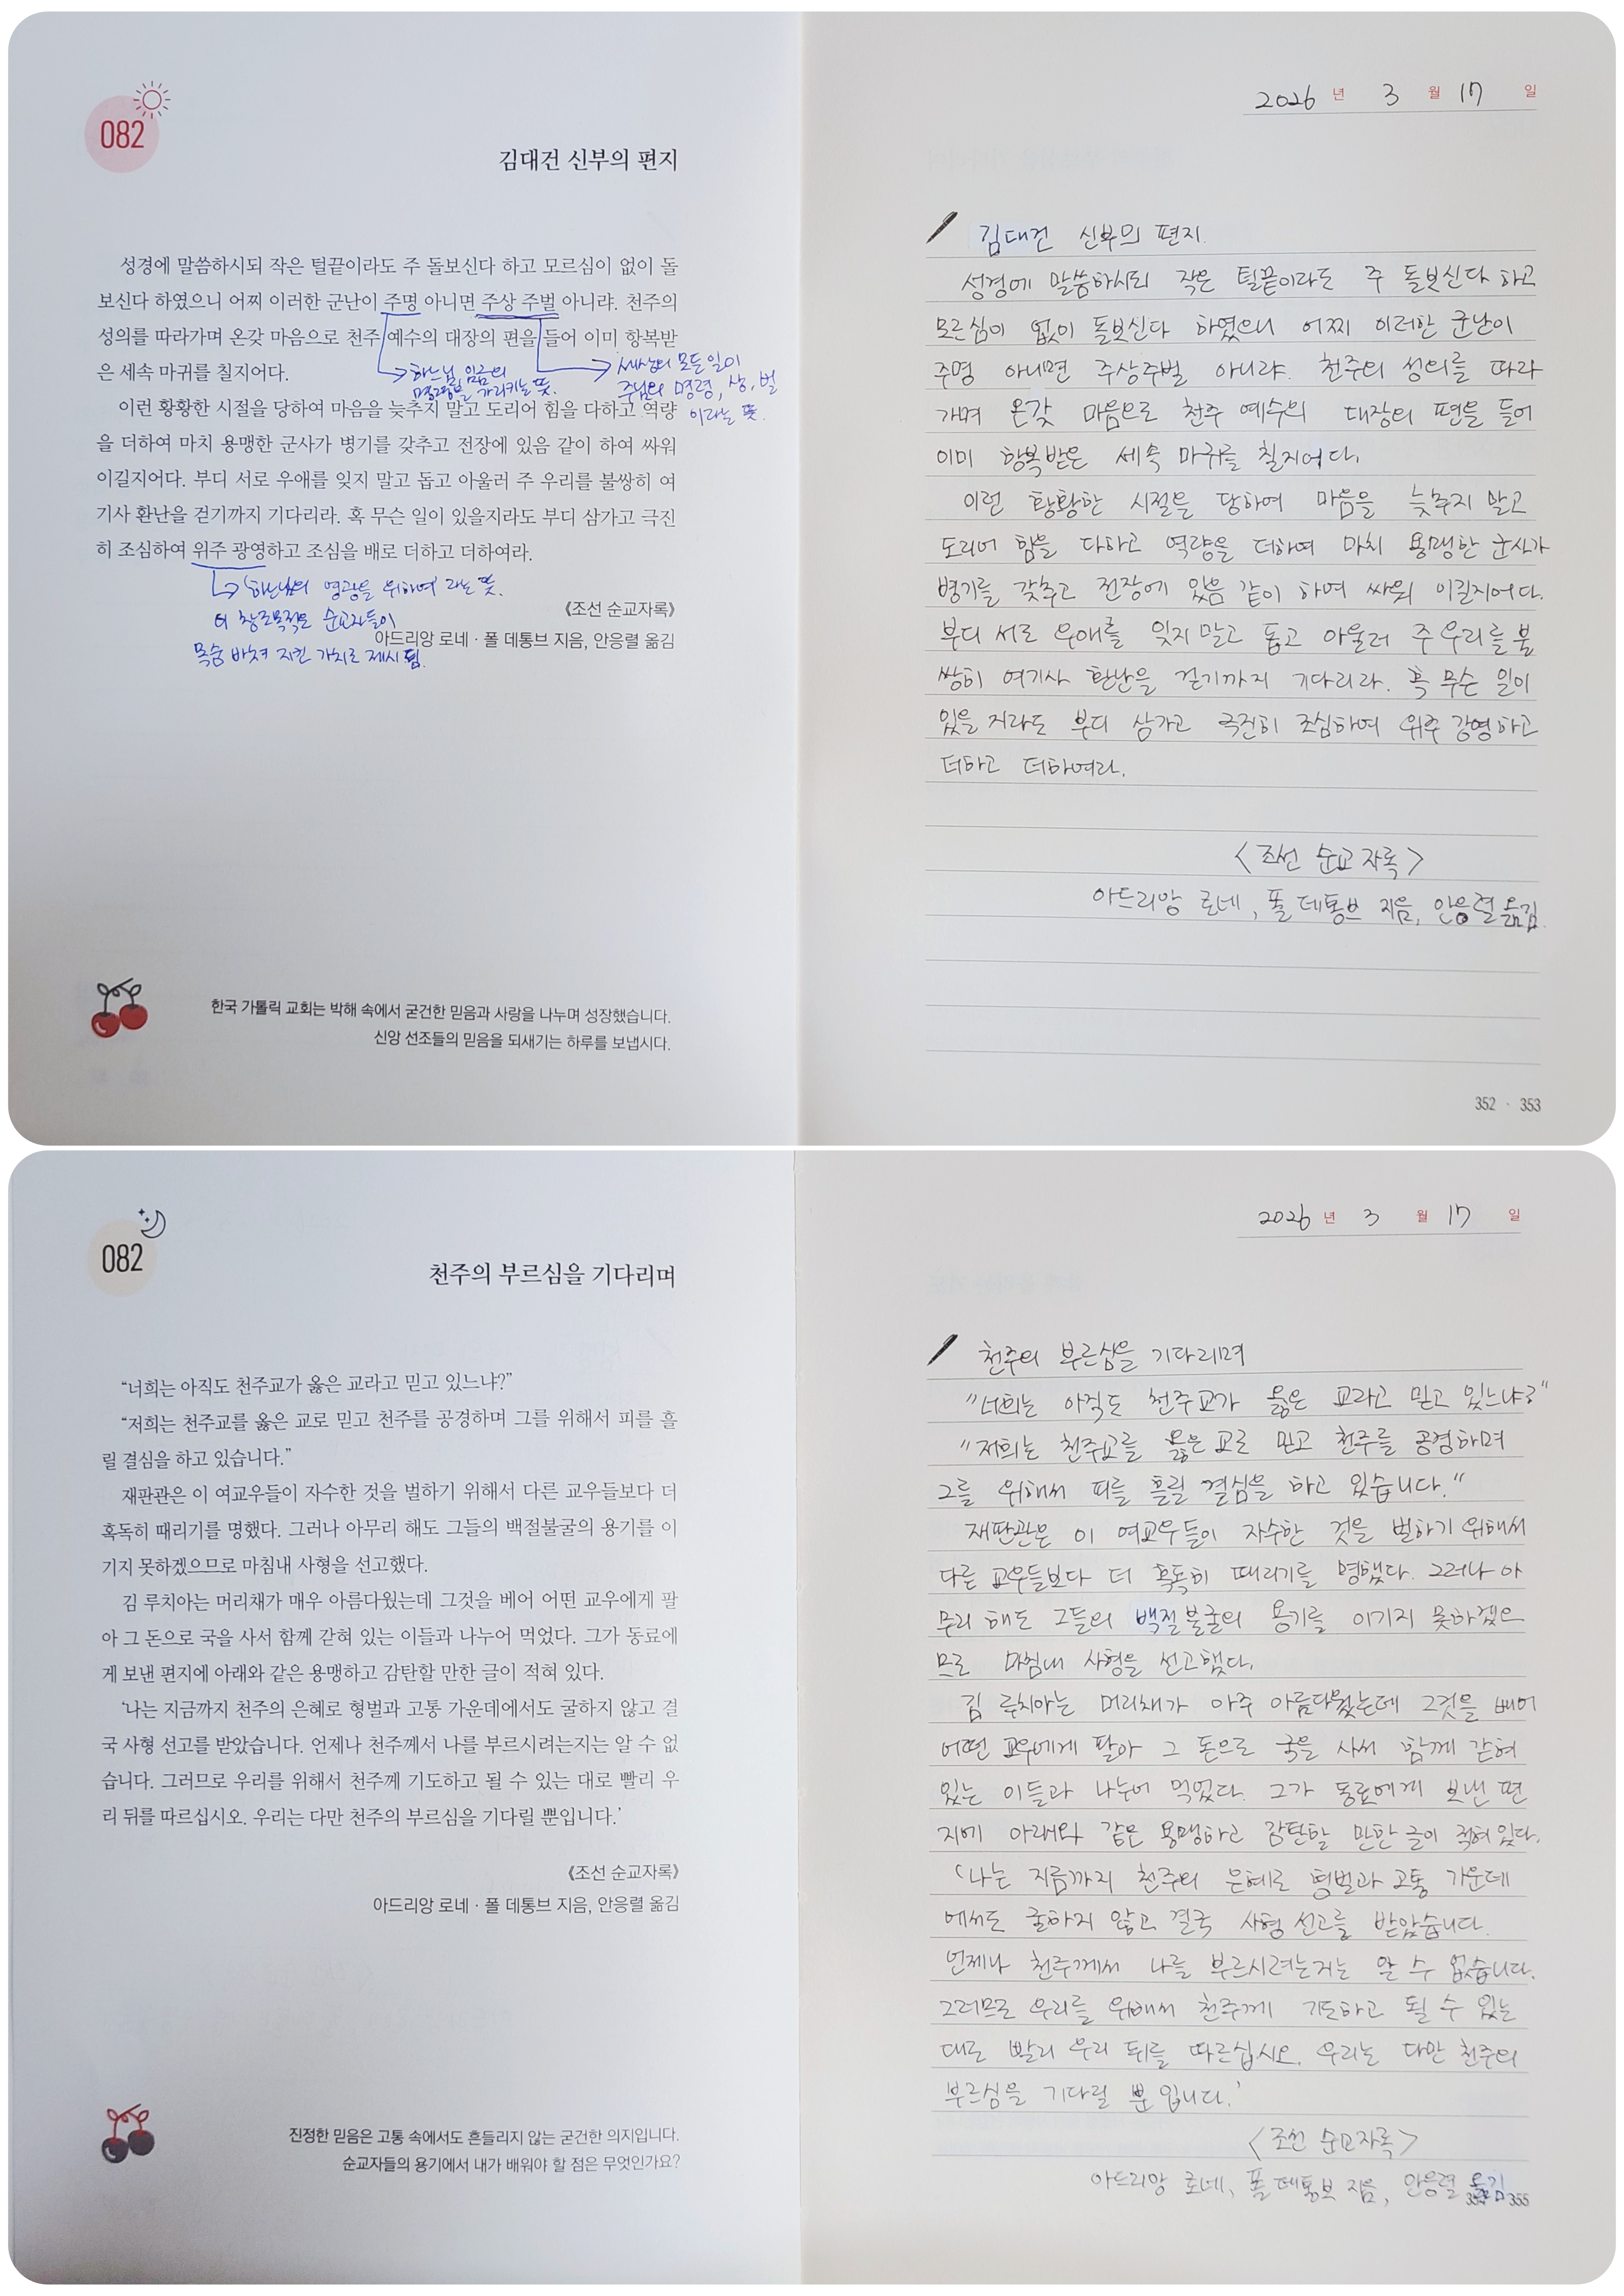 082
김대건 신부의 편지
성경에 말씀하시되 작은 털끝이라도 주 돌보신다 하고 모르심이 없이 돌
보신다 하였으니 어찌 이러한 군난이 주명 아니면 주상 주벌 아니랴. 천주의
성의를 따라가며 온갖 마음으로 천주 예수의 대장의 편을 들어 이미 항복받
은 세속 마귀를 칠지어다.
하느님 임금의
명령을 가리키는 뜻.
세상의 모든 일이
주님의 명령, 상, 벌
이라는 뜻.
이런 황황한 시절을 당하여 마음을 늦추지 말고 도리어 힘을 다하고 역량
을 더하여 마치 용맹한 군사가 병기를 갖추고 전장에 있음 같이 하여 싸워
이길지어다. 부디 서로 우애를 잊지 말고 돕고 아울러 주 우리를 불쌍히 여
기사 환난을 걷기까지 기다리라. 혹 무슨 일이 있을지라도 부디 삼가고 극진
히 조심하여 위주 광영하고 조심을 배로 더하고 더하여라.
'하느님의 영광을 위하여' 라는 뜻.
이 창조목적은 순교자들이
목숨 바쳐 지킨 가치로 제시됨.
《조선 순교자록》
아드리앙 로네 · 폴 데통브 지음, 안응렬 옮김
한국 가톨릭 교회는 박해 속에서 굳건한 믿음과 사랑을 나누며 성장했습니다.
신앙 선조들의 믿음을 되새기는 하루를 보냅시다.
2026 년 3 월 17 일
김대건 신부의 편지.
성경에 말씀하시되 작은 털끝이라도 주 돌보신다 하고
모르심이 없이 돌보신다 하였으니 어찌 이러한 군난이
주명 아니면 주상주벌 아니랴. 천주의 성의를 따라
가며 온갖 마음으로 천주 예수의 대장의 편을 들어
이미 항복받은 세속 마귀를 칠지어다.
이런 황황한 시절을 당하여 마음을 늦추지 말고
도리어 힘을 다하고 역량을 더하여 마치 용맹한 군사가
병기를 갖추고 전장에 있음 같이 하여 싸워 이길지어다.
부디 서로 우애를 잊지 말고 돕고 아울러 주 우리를 불
쌍히 여기사 환난을 걷기까지 기다리라. 혹 무슨 일이
있을 지라도 부디 삼가고 극진히 조심하여 위주 광영하고
더하고 더하여라.
<조선 순교자록>
아드리앙 로네, 폴 데통브 지음, 안응렬 옮김.
352 · 353
082
천주의 부르심을 기다리며
“너희는 아직도 천주교가 옳은 교라고 믿고 있느냐?”
“저희는 천주교를 옳은 교로 믿고 천주를 공경하며 그를 위해서 피를 흘
릴 결심을 하고 있습니다.”
재판관은 이 여교우들이 자수한 것을 벌하기 위해서 다른 교우들보다 더
혹독히 때리기를 명했다. 그러나 아무리 해도 그들의 백절불굴의 용기를 이
기지 못하겠으므로 마침내 사형을 선고했다.
김 루치아는 머리채가 매우 아름다웠는데 그것을 베어 어떤 교우에게 팔
아 그 돈으로 국을 사서 함께 갇혀 있는 이들과 나누어 먹었다. 그가 동료에
게 보낸 편지에 아래와 같은 용맹하고 감탄할 만한 글이 적혀 있다.
‘나는 지금까지 천주의 은혜로 형벌과 고통 가운데에서도 굴하지 않고 결
국 사형 선고를 받았습니다. 언제나 천주께서 나를 부르시려는지는 알 수 없
습니다. 그러므로 우리를 위해서 천주께 기도하고 될 수 있는 대로 빨리 우
리 뒤를 따르십시오. 우리는 다만 천주의 부르심을 기다릴 뿐입니다.’
《조선 순교자록》
아드리앙 로네 · 폴 데통브 지음, 안응렬 옮김
진정한 믿음은 고통 속에서도 흔들리지 않는 굳건한 의지입니다.
순교자들의 용기에서 내가 배워야 할 점은 무엇인가요?
2026 년 3 월 17 일
천주의 부르심을 기다리며
“너희는 아직도 천주교가 옳은 교라고 믿고 있느냐?”
“저희는 천주교를 옳은 교로 믿고 천주를 공경하며
그를 위해서 피를 흘릴 결심을 하고 있습니다.“
재판관은 이 여교우들이 자수한 것을 벌하기 위해서
다른 교우들보다 더 혹독히 때리기를 명했다. 그러나 아
무리 해도 그들의 백절불굴의 용기를 이기지 못하겠으
므로 마침내 사형을 선고했다.
김 루치아는 머리채가 아주 아름다웠는데 그것을 베어
어떤 교우에게 팔아 그 돈으로 국을 사서 함께 갇혀
있는 이들과 나누어 먹었다. 그가 동료에게 보낸 편
지에 아래와 같은 용맹하고 감탄할 만한 글이 적혀 있다.
‘나는 지금까지 천주의 은혜로 형벌과 고통 가운데
에서도 굴하지 않고 결국 사형 선고를 받았습니다.
언제나 천주께서 나를 부르시려는거는 알 수 없습니다.
그러므로 우리를 위해서 천주께 기도하고 될 수 있는
대로 빨리 우리 뒤를 따르십시오. 우리는 다만 천주의
부르심을 기다릴 뿐 입니다.’
<조선 순교자록>
아드리앙 로네, 폴 데통브 지음, 안응렬 옮김
355